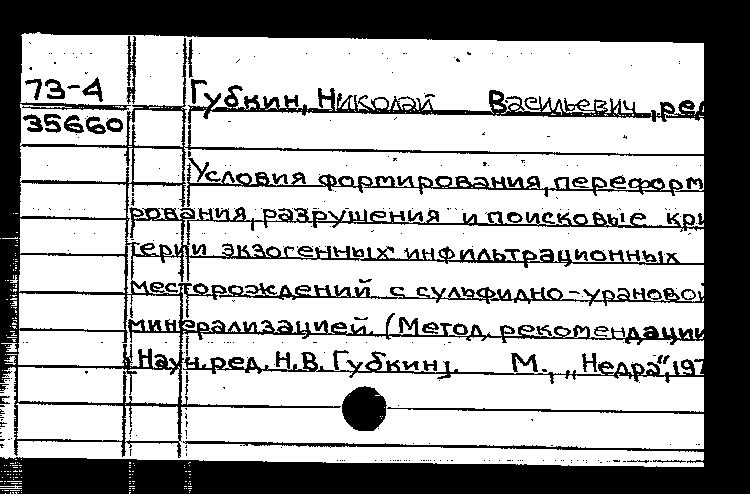 73-4 Губкин, Николай Васильевич, ред
35660
Условия формирования, переформ
рования, разрушения и поисковые кри
терии экзогенных инфильтрационных
месторождений с сульфидно-урановой
минерализацией. (Метод. рекомендации
[Науч. ред. Н.В. Губкин]. М., „Недра“, 197